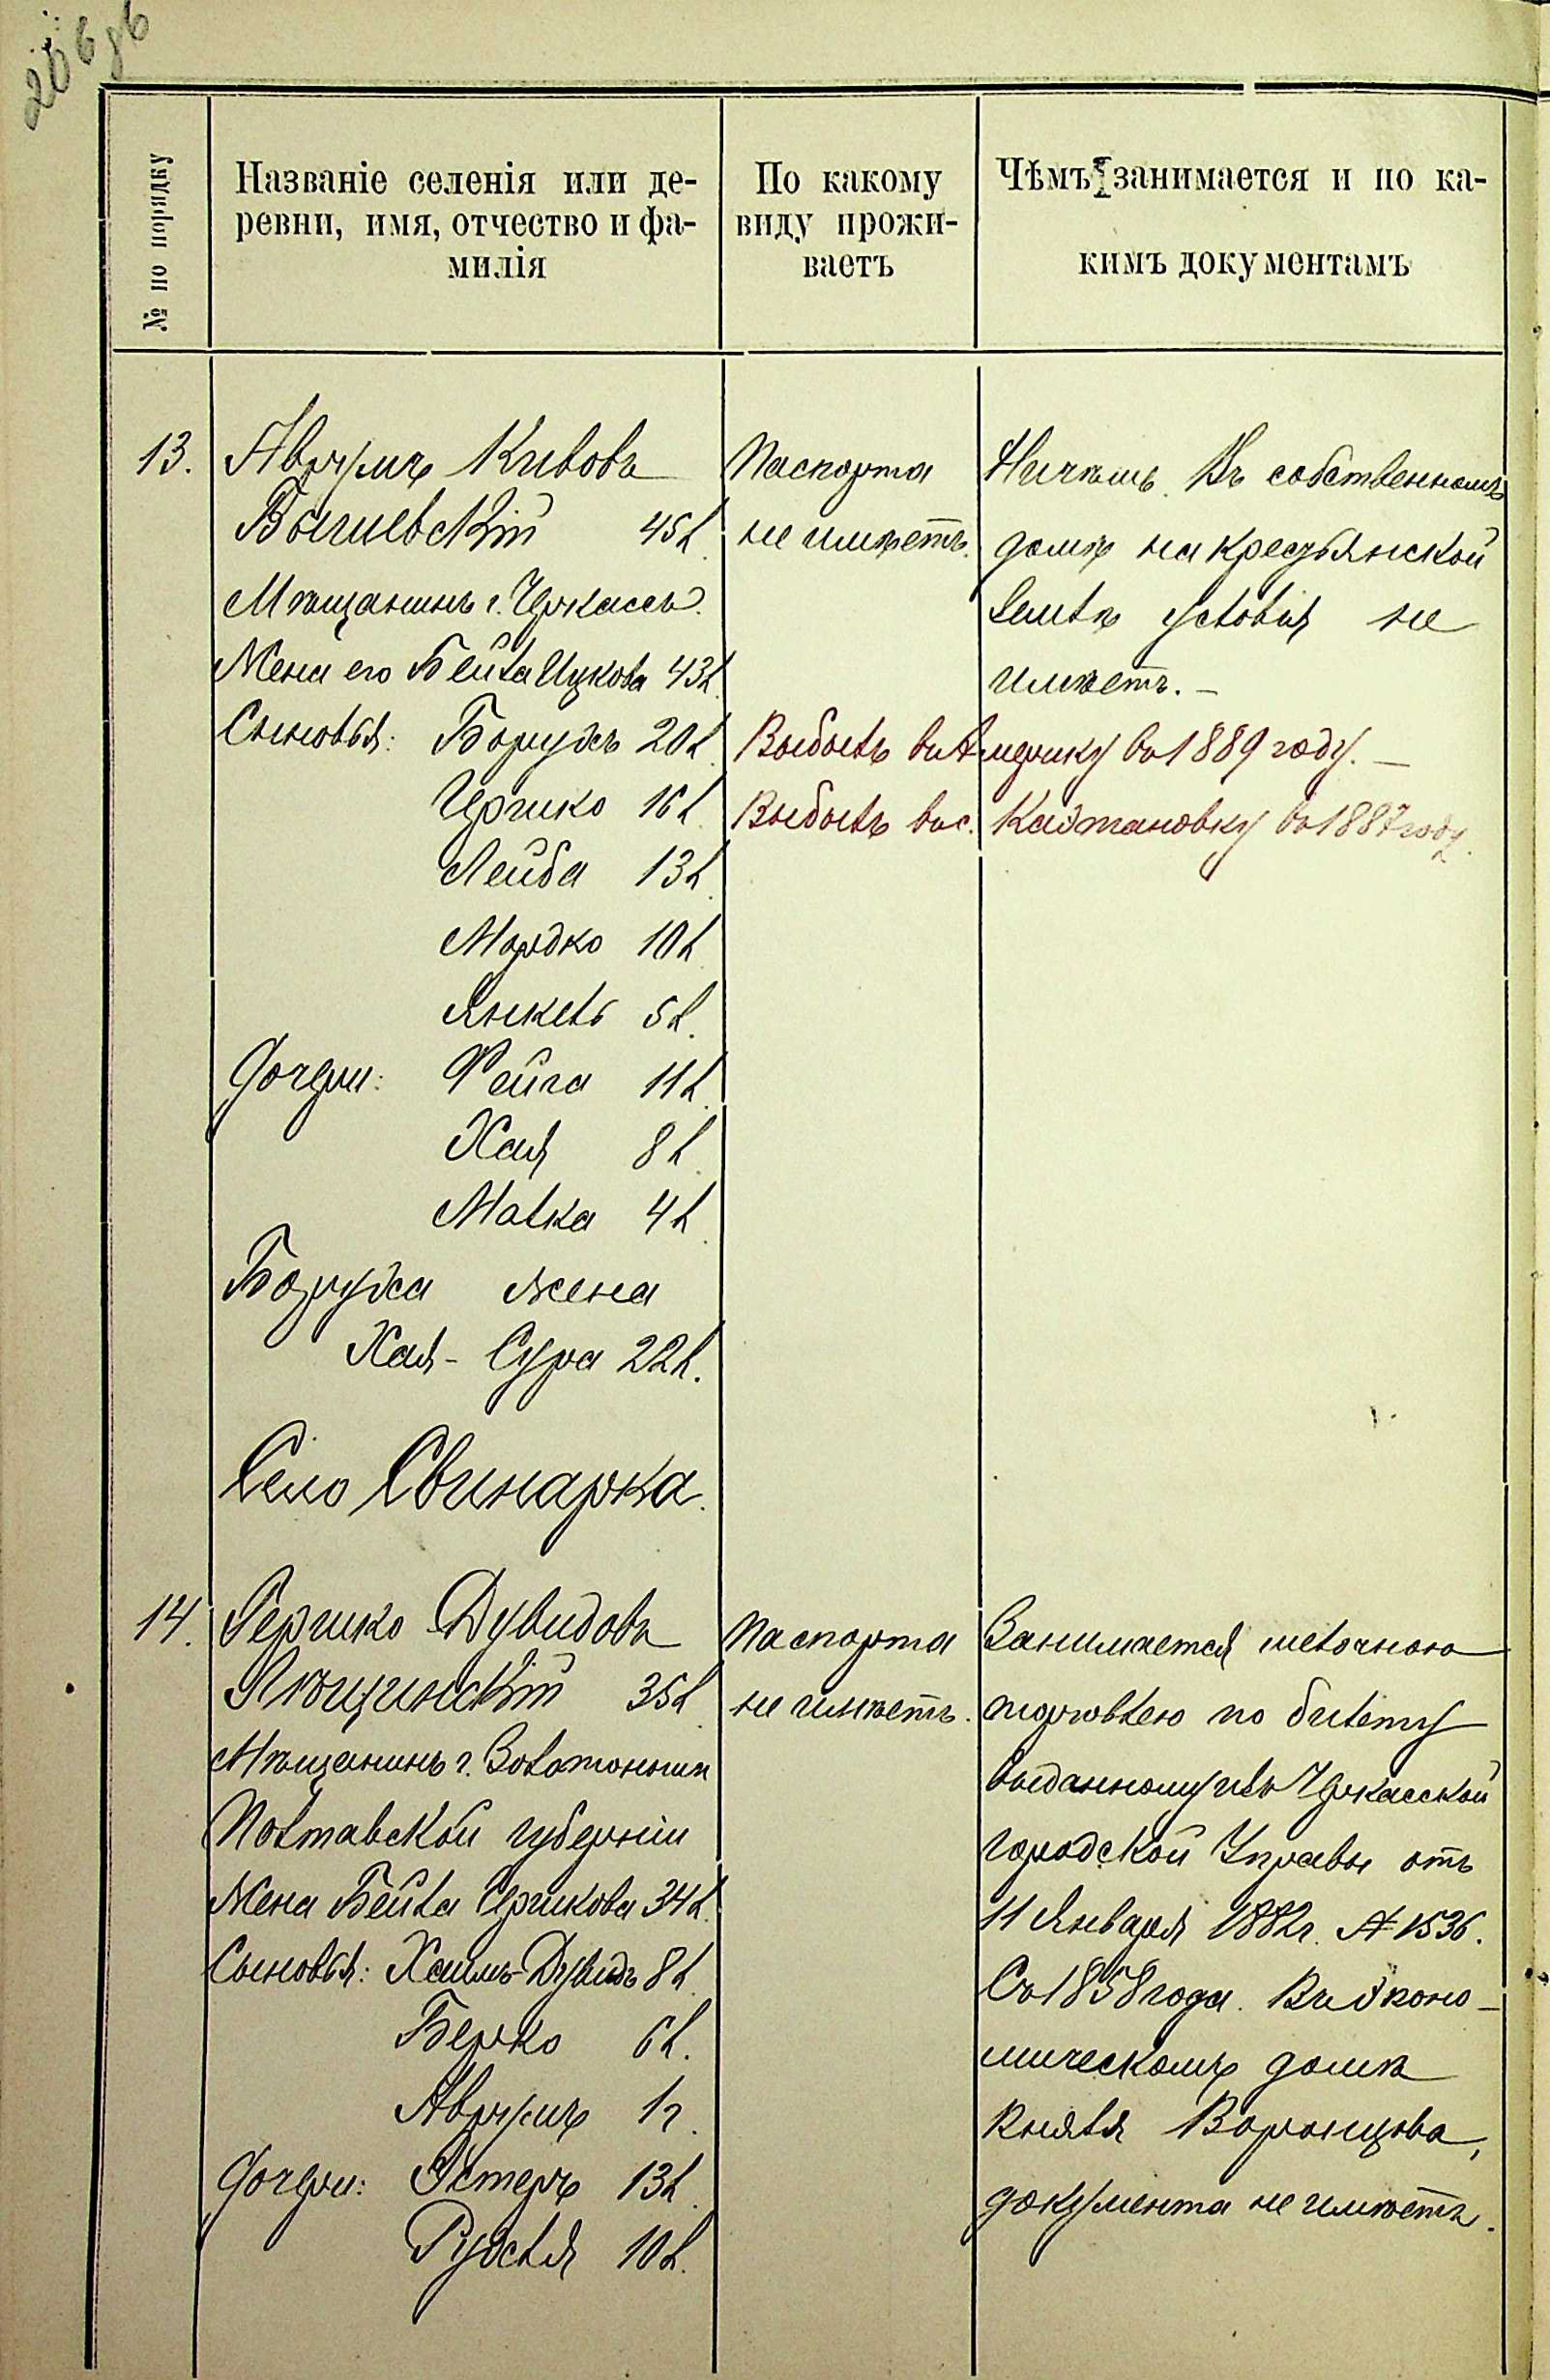 266 об
№ по порядку
Названіе селенія или де-
ревни, имя, отчество и фа-
милія
По какому
виду прожи-
ваетъ
Чѣмъ занимается и по ка-
кимъ документамъ
13.
Аврумъ Кивовъ
45 л.
Мѣщанинъ г. Черкассъ.
Жена его Бейла Ицкова 43 л.
Сыновья: Борухъ 20 л.
Ершко 16 л.
Лейба 13 л.
Мордко 10 л.
Янкель 5 л.
Дочери: Фейга 11 л.
Хая 8 л.
Малка 4 л.
Боруха жена
Хая-Сура 22 л.
Паспорта
не имѣетъ.
Ничѣмъ. Въ собственномъ
домѣ на крестьянской
землѣ условія не
имѣетъ. –
Выбылъ въ Америку въ 1889 году. –
Выбылъ въ с. въ 1887 году.
Село Свинарка.
14.
Гершко Дувидовъ
35 л.
Мѣщанинъ г. Золотоноши
Полтавской губерніи
Жена Бейла Ершкова 34 л.
Сыновья: Хаимъ-Дувидъ 8 л.
Берко 6 л.
Аврумъ 1 г.
Дочери: Эстеръ 13 л.
Рухля 10 л.
Паспорта
не имѣетъ.
Занимается мелочною
торговлею по билету
выданному изъ Черкасской
Городской Управы отъ
11 Января 1882 г. № 1536.
Съ 1858 года. Въ эконо-
мическомъ домѣ
Князя Воронцова,
документа не имѣетъ.